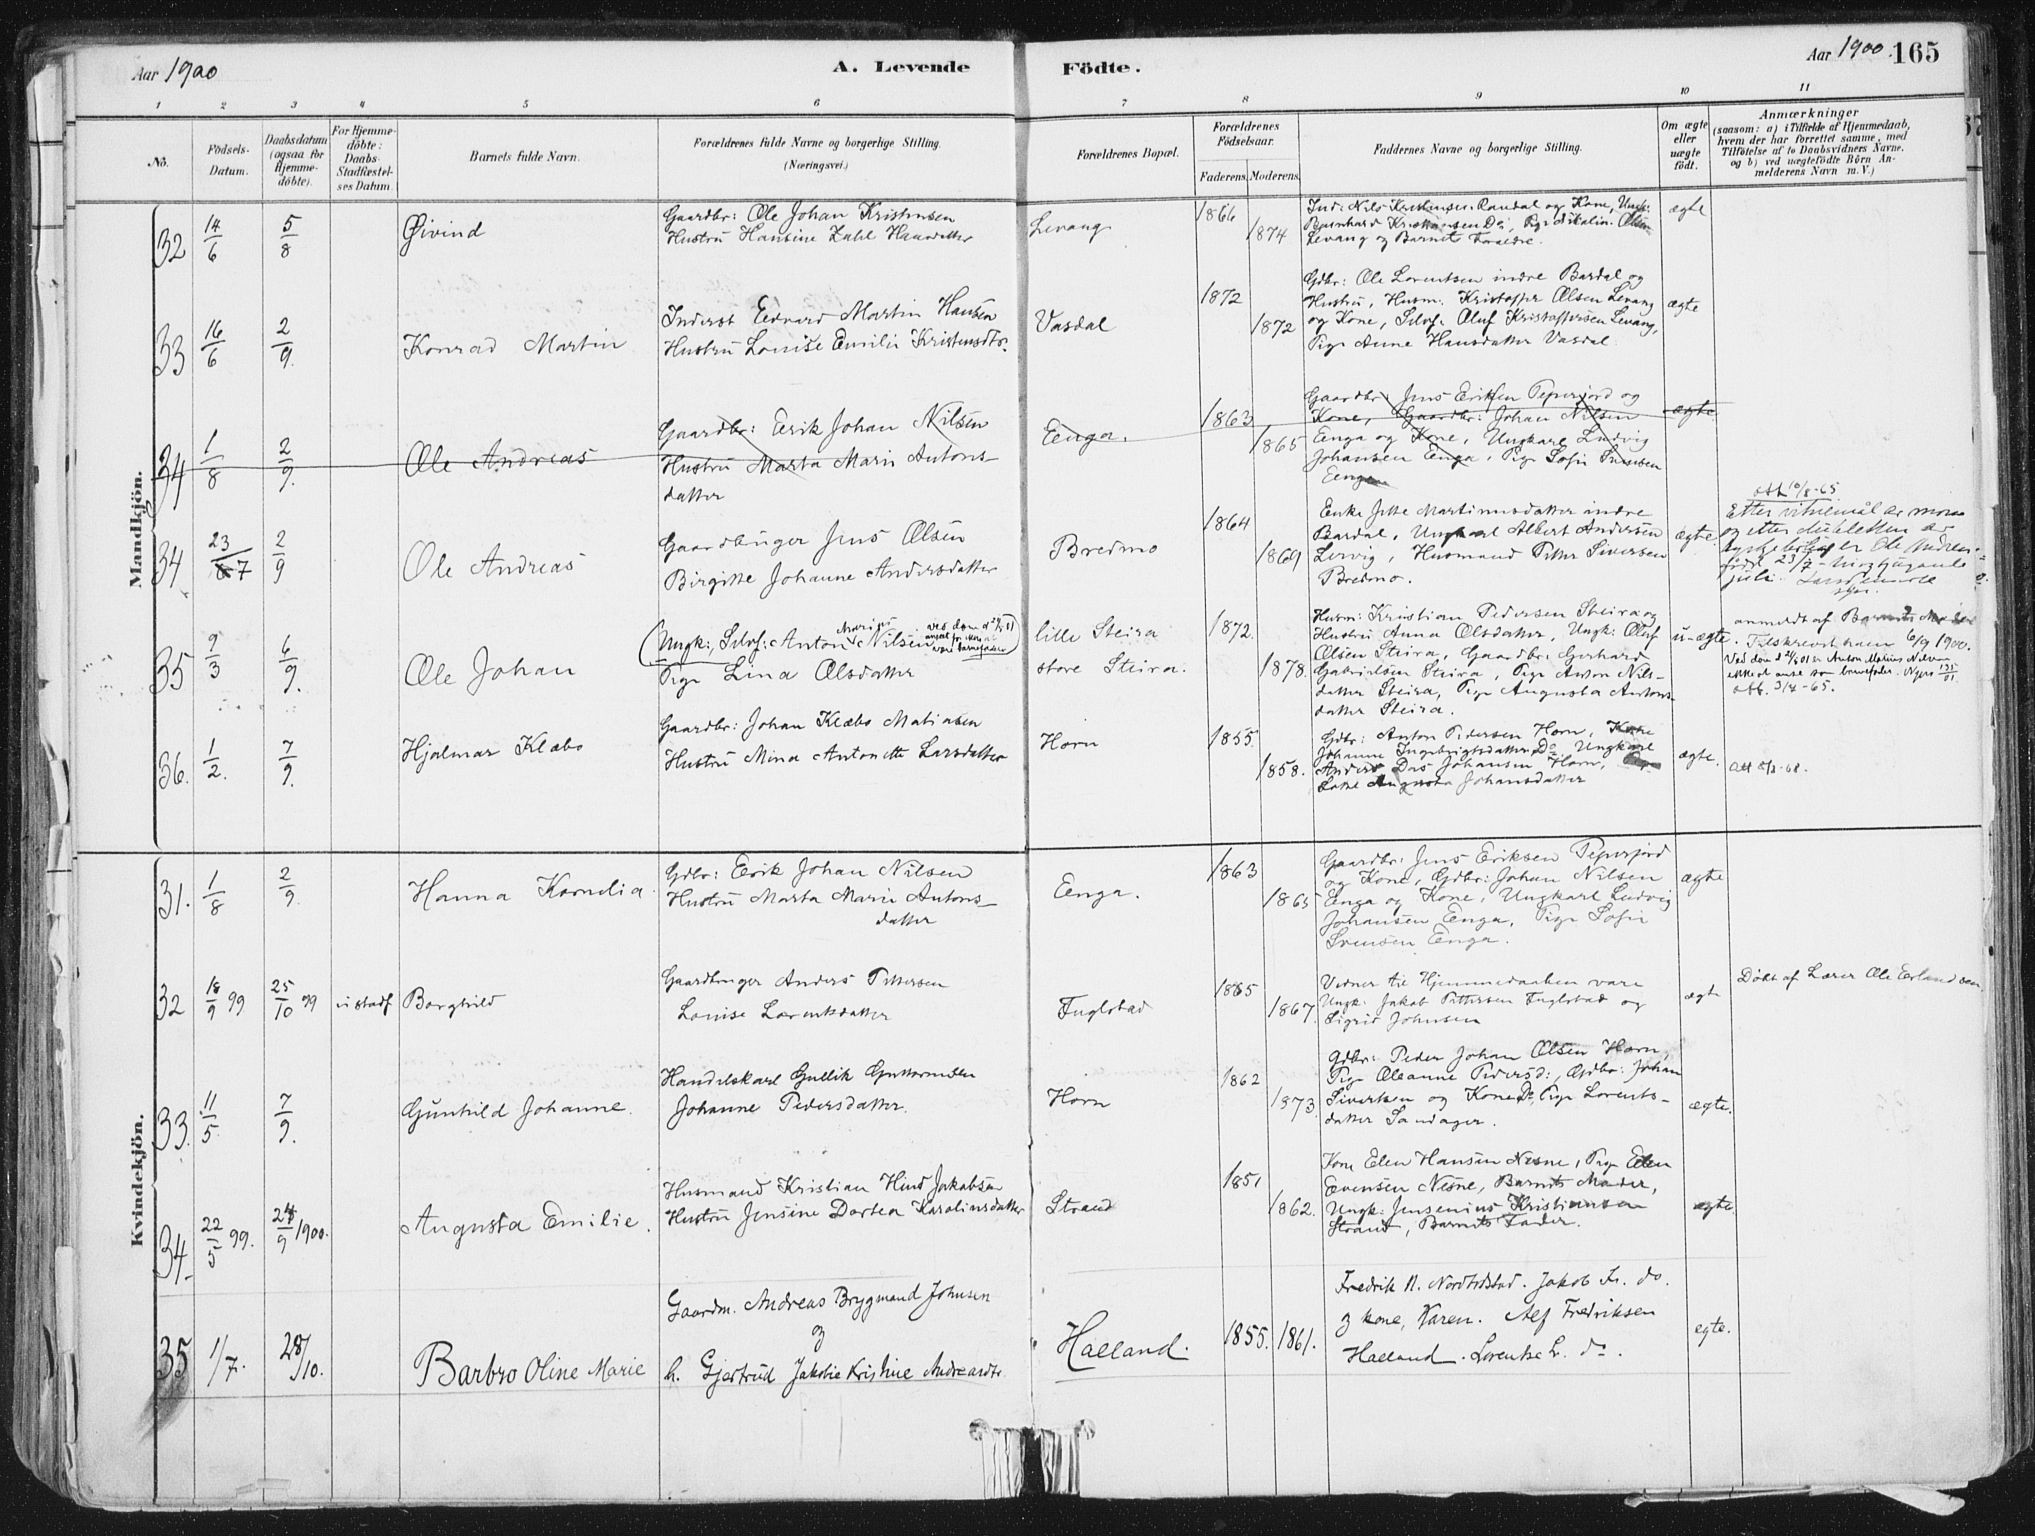 Aar 1900
A. Levende
Födte.
Aar 1900. 165
1 2 3 4 5 6 7 8 9 10 11
No.
Födsels-
Datum.
Daabsdatum
(ogsaa for
Hjemme-
döbte).
For Hjemme-
döbte:
Daabs-
Stadfæstel-
ses Datum.
Barnets fulde Navn.
Forældrenes fulde Navne og borgerlige Stilling.
(Næringsvei.)
Forældrenes Bopæl.
Forældrenes
Födselsaar.
Faderens. Moderens.
Faddernes Navne og borgerlige Stilling.
Om ægte
eller
uægte
födt.
Anmærkninger
(saasom: a) i Tilfælde af Hjemmedaab,
hvem der har forrettet samme, med
Tilföielse af to Daabsvidners Navne.
og b) ved uægtefödte Börn An-
melderens Navn m. V.)
Mandkjön.
32 14/6 5/8 Øivind
Gaardbr: Ole Johan Kristensen
Hustru Hansine Zahl Hansdatter
Levang 1866 1874
Ind: Nils Kristensen Randal og Kone, Ungk:
Levang og Barnets Forældre.
ægte
33 16/6 2/9 Konrad Martin
Inderst Edvard Martin Hansen
Hustru Louise Emilie Kristensdtr.
Vasdal 1872 1872
Gdbr: Ole Lorentsen indre Bardal og
Hustru, Husm. Kristoffer Olsen Levang
og Kone, Selvf: Oluf Kristoffersen Levang,
Pige Anne Hansdatter Vasdal
ægte
34 1/8 2/9 Ole Andreas
Gaardbr: Erik Johan Nilsen
Hustru Marta Marie Antons-
datter
Eenga. 1863 1865
Gaardbr: Jens Eriksen Peperfjord og
Kone, Gaardbr: Johan Nilsen
Enga og Kone, Ungkarl Ludvig
Johansen Enga, Pige Sofie Svensen
Eenga
ægte
34 23/7 2/9 Ole Andreas
Gaardbruger Jens Olsen
Birgitte Johanne Andersdatter
Bredmo 1864 1869
Enke Jitte Martinusdatter indre
Bardal, Ungkarl Albert Andersen
Lervig, Husmand Petter Siversen
Bredmo.
ægte
att 10/8-65
Etter vitnemål av moren
og etter dubletten av
kyrkjeboka er Ole Andreas
født 23/7
juli.
35 9/3 6/9. Ole Johan
(Ungk: Selvf: Anton Marius Nilsen
Pige Lina Olsdatter
lille Steira
store Steira. 1872. 1878.
Husm: Kristian Pedersen Steira og
Hustru Anna Olsdatter, Ungk: Oluf
Olsen Steira, Gaardbr: Gerhard
Gabrielsen Steira, Pige Anton Nils-
datter Steira, Pige Augusta Antons-
datter Steira.
u-ægte.
anmeldt af Barnets Moder
Tilskrevet ham 6/9 1900.
Ved dom d 2/5 01 er Anton Marius Nilsen
ikke at anse som barnefader. N jrs 135/01.
att. 3/4-65.
36. 1/2. 7/9. Hjalmar Klæbo
Gaardbr: Johan Klæbo Matiasen
Hustru Mina Antonette Larsdatter
Horn 1855. 1858.
Gdbr: Anton Pedersen Horn, Kone
Johanne Ingebrigtsdatter Do, Ungkarl
Anders Das Johansen Horn, Pige
Lotte Augusta Johansdatter
ægte.
Att 5/2-68.
Kvindekjön.
31. 1/8 2/9. Hanna Kornelia.
Gdbr: Erik Johan Nilsen
Hustru Marta Marie Antons-
datter
Eenga. 1863 1865
Gaardbr: Jens Eriksen Peperfjord
og Kone, Gdbr: Johan Nilsen
Enga og Kone, Ungkarl Ludvig
Johansen Enga, Pige Sofie
Svensen Enga.
ægte
32 18/9 99 25/10 99 u stadf Borghild
Gaardbruger Anders Pettersen
Louise Lorentsdatter
Fuglstad 1865 1867.
Vidner til Hjemmedaaben vare
Ungk: Jakob Pettersen Fuglstad og
Sigrid Johnsen
ægte
Döbt af Lærer Ole Erlandsen
33. 11/5. 7/9. Gunhild Johanne.
Handelskarl Gullik Guttormsen
Johanne Pedersdatter.
Horn 1862 1873.
Gdbr: Peder Johan Olsen Horn,
Pige Oleanne Pedersd:, Gdbr: Johan
Sivertsen og Kone Do, Pige Lorents-
datter Sandager.
ægte.
34. 22/5 99. 24/9 1900. Augusta Emilie.
Husmand Kristian Hind Jakobsen
Hustru Jensine Dortea Karolinsdatter
Strand 1851 1862.
Kone Elen Hansen Nesne, Pige Elen
Evensen Nesne, Barnets Moder,
Ungk: Jensenius Kristiansen
Strand, Barnets Fader.
ægte
35 1/7. 28/10. Barbro Oline Marie
Gaardm. Andreas Brygmand Johnsen
og
h. Gjertrud Jakobie Kristine Andreasdtr
Halland. 1855. 1861.
Fredrik N. Nordfidstad. Jakob Fr. do.
og kone, Karen. Alf Fredriksen
Halland. Lorentse L. do.
egte.